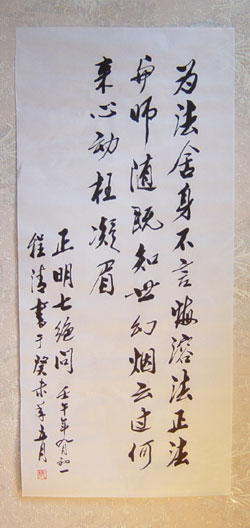 为法舍身不言悔溶法正法
护师随既知世幻烟云过何
来心动枉凝眉
正明七绝问 壬午年九月初一
程清书于癸未羊五月